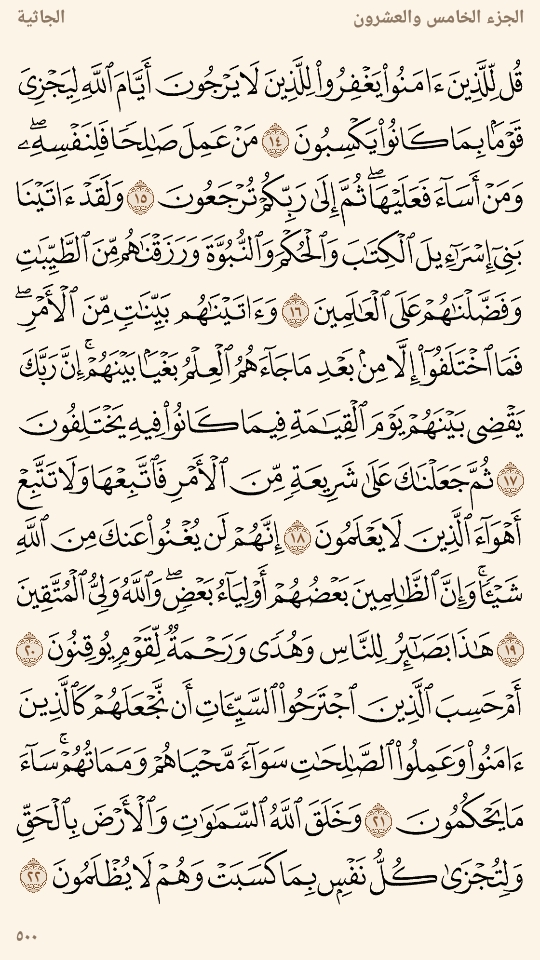 الجزء الخامس والعشرون
الجاثية
قُل لِّلَّذِينَ ءَامَنُوا۟ يَغْفِرُوا۟ لِلَّذِينَ لَا يَرْجُونَ أَيَّامَ ٱللَّهِ لِيَجْزِىَ
قَوْمًۢا بِمَا كَانُوا۟ يَكْسِبُونَ ١٤ مَنْ عَمِلَ صَـٰلِحًا فَلِنَفْسِهِۦۖ
وَمَنْ أَسَآءَ فَعَلَيْهَاۖ ثُمَّ إِلَىٰ رَبِّكُمْ تُرْجَعُونَ ١٥ وَلَقَدْ ءَاتَيْنَا
بَنِىٓ إِسْرَٰٓءِيلَ ٱلْكِتَـٰبَ وَٱلْحُكْمَ وَٱلنُّبُوَّةَ وَرَزَقْنَـٰهُم مِّنَ ٱلطَّيِّبَـٰتِ
وَفَضَّلْنَـٰهُمْ عَلَى ٱلْعَـٰلَمِينَ ١٦ وَءَاتَيْنَـٰهُم بَيِّنَـٰتٍ مِّنَ ٱلْأَمْرِۖ
فَمَا ٱخْتَلَفُوٓا۟ إِلَّا مِنۢ بَعْدِ مَا جَآءَهُمُ ٱلْعِلْمُ بَغْيًۢا بَيْنَهُمْۚ إِنَّ رَبَّكَ
يَقْضِى بَيْنَهُمْ يَوْمَ ٱلْقِيَـٰمَةِ فِيمَا كَانُوا۟ فِيهِ يَخْتَلِفُونَ
١٧ ثُمَّ جَعَلْنَـٰكَ عَلَىٰ شَرِيعَةٍ مِّنَ ٱلْأَمْرِ فَٱتَّبِعْهَا وَلَا تَتَّبِعْ
أَهْوَآءَ ٱلَّذِينَ لَا يَعْلَمُونَ ١٨ إِنَّهُمْ لَن يُغْنُوا۟ عَنكَ مِنَ ٱللَّهِ
شَيْـًٔاۚ وَإِنَّ ٱلظَّـٰلِمِينَ بَعْضُهُمْ أَوْلِيَآءُ بَعْضٍۖ وَٱللَّهُ وَلِىُّ ٱلْمُتَّقِينَ
١٩ هَـٰذَا بَصَـٰٓئِرُ لِلنَّاسِ وَهُدًى وَرَحْمَةٌ لِّقَوْمٍ يُوقِنُونَ ٢٠
أَمْ حَسِبَ ٱلَّذِينَ ٱجْتَرَحُوا۟ ٱلسَّيِّـَٔاتِ أَن نَّجْعَلَهُمْ كَٱلَّذِينَ
ءَامَنُوا۟ وَعَمِلُوا۟ ٱلصَّـٰلِحَـٰتِ سَوَآءً مَّحْيَاهُمْ وَمَمَاتُهُمْۚ سَآءَ
مَا يَحْكُمُونَ ٢١ وَخَلَقَ ٱللَّهُ ٱلسَّمَـٰوَٰتِ وَٱلْأَرْضَ بِٱلْحَقِّ
وَلِتُجْزَىٰ كُلُّ نَفْسٍۭ بِمَا كَسَبَتْ وَهُمْ لَا يُظْلَمُونَ ٢٢
٥٠٠